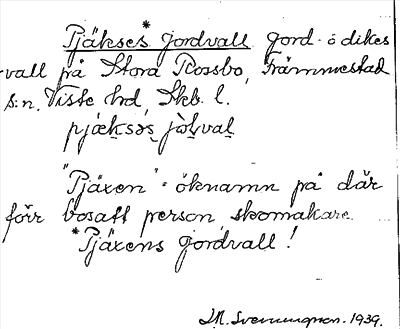 Pjäkses* jordvall jord- o dikes
vall på Stora Rossbo, Främmestad
s:n, Viste hd, Skb. l.
pjæksəs jòlval
"Pjäxen" = öknamn på där
förr bosatt person, skomakare.
*Pjäxens jordvall!
Svenungsson. 1939.